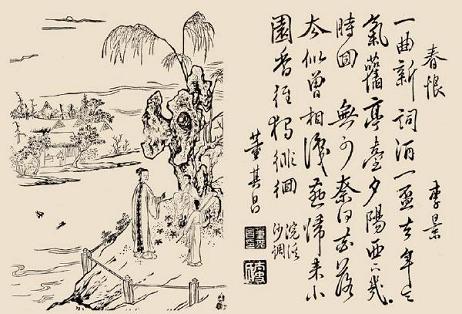 春恨 李景
一曲新詞酒一盃去年天
氣舊亭臺夕陽西下幾
時回 無可奈何花落
去似曾相識燕歸來小
園香徑獨徘徊
浣溪
沙調
董其昌